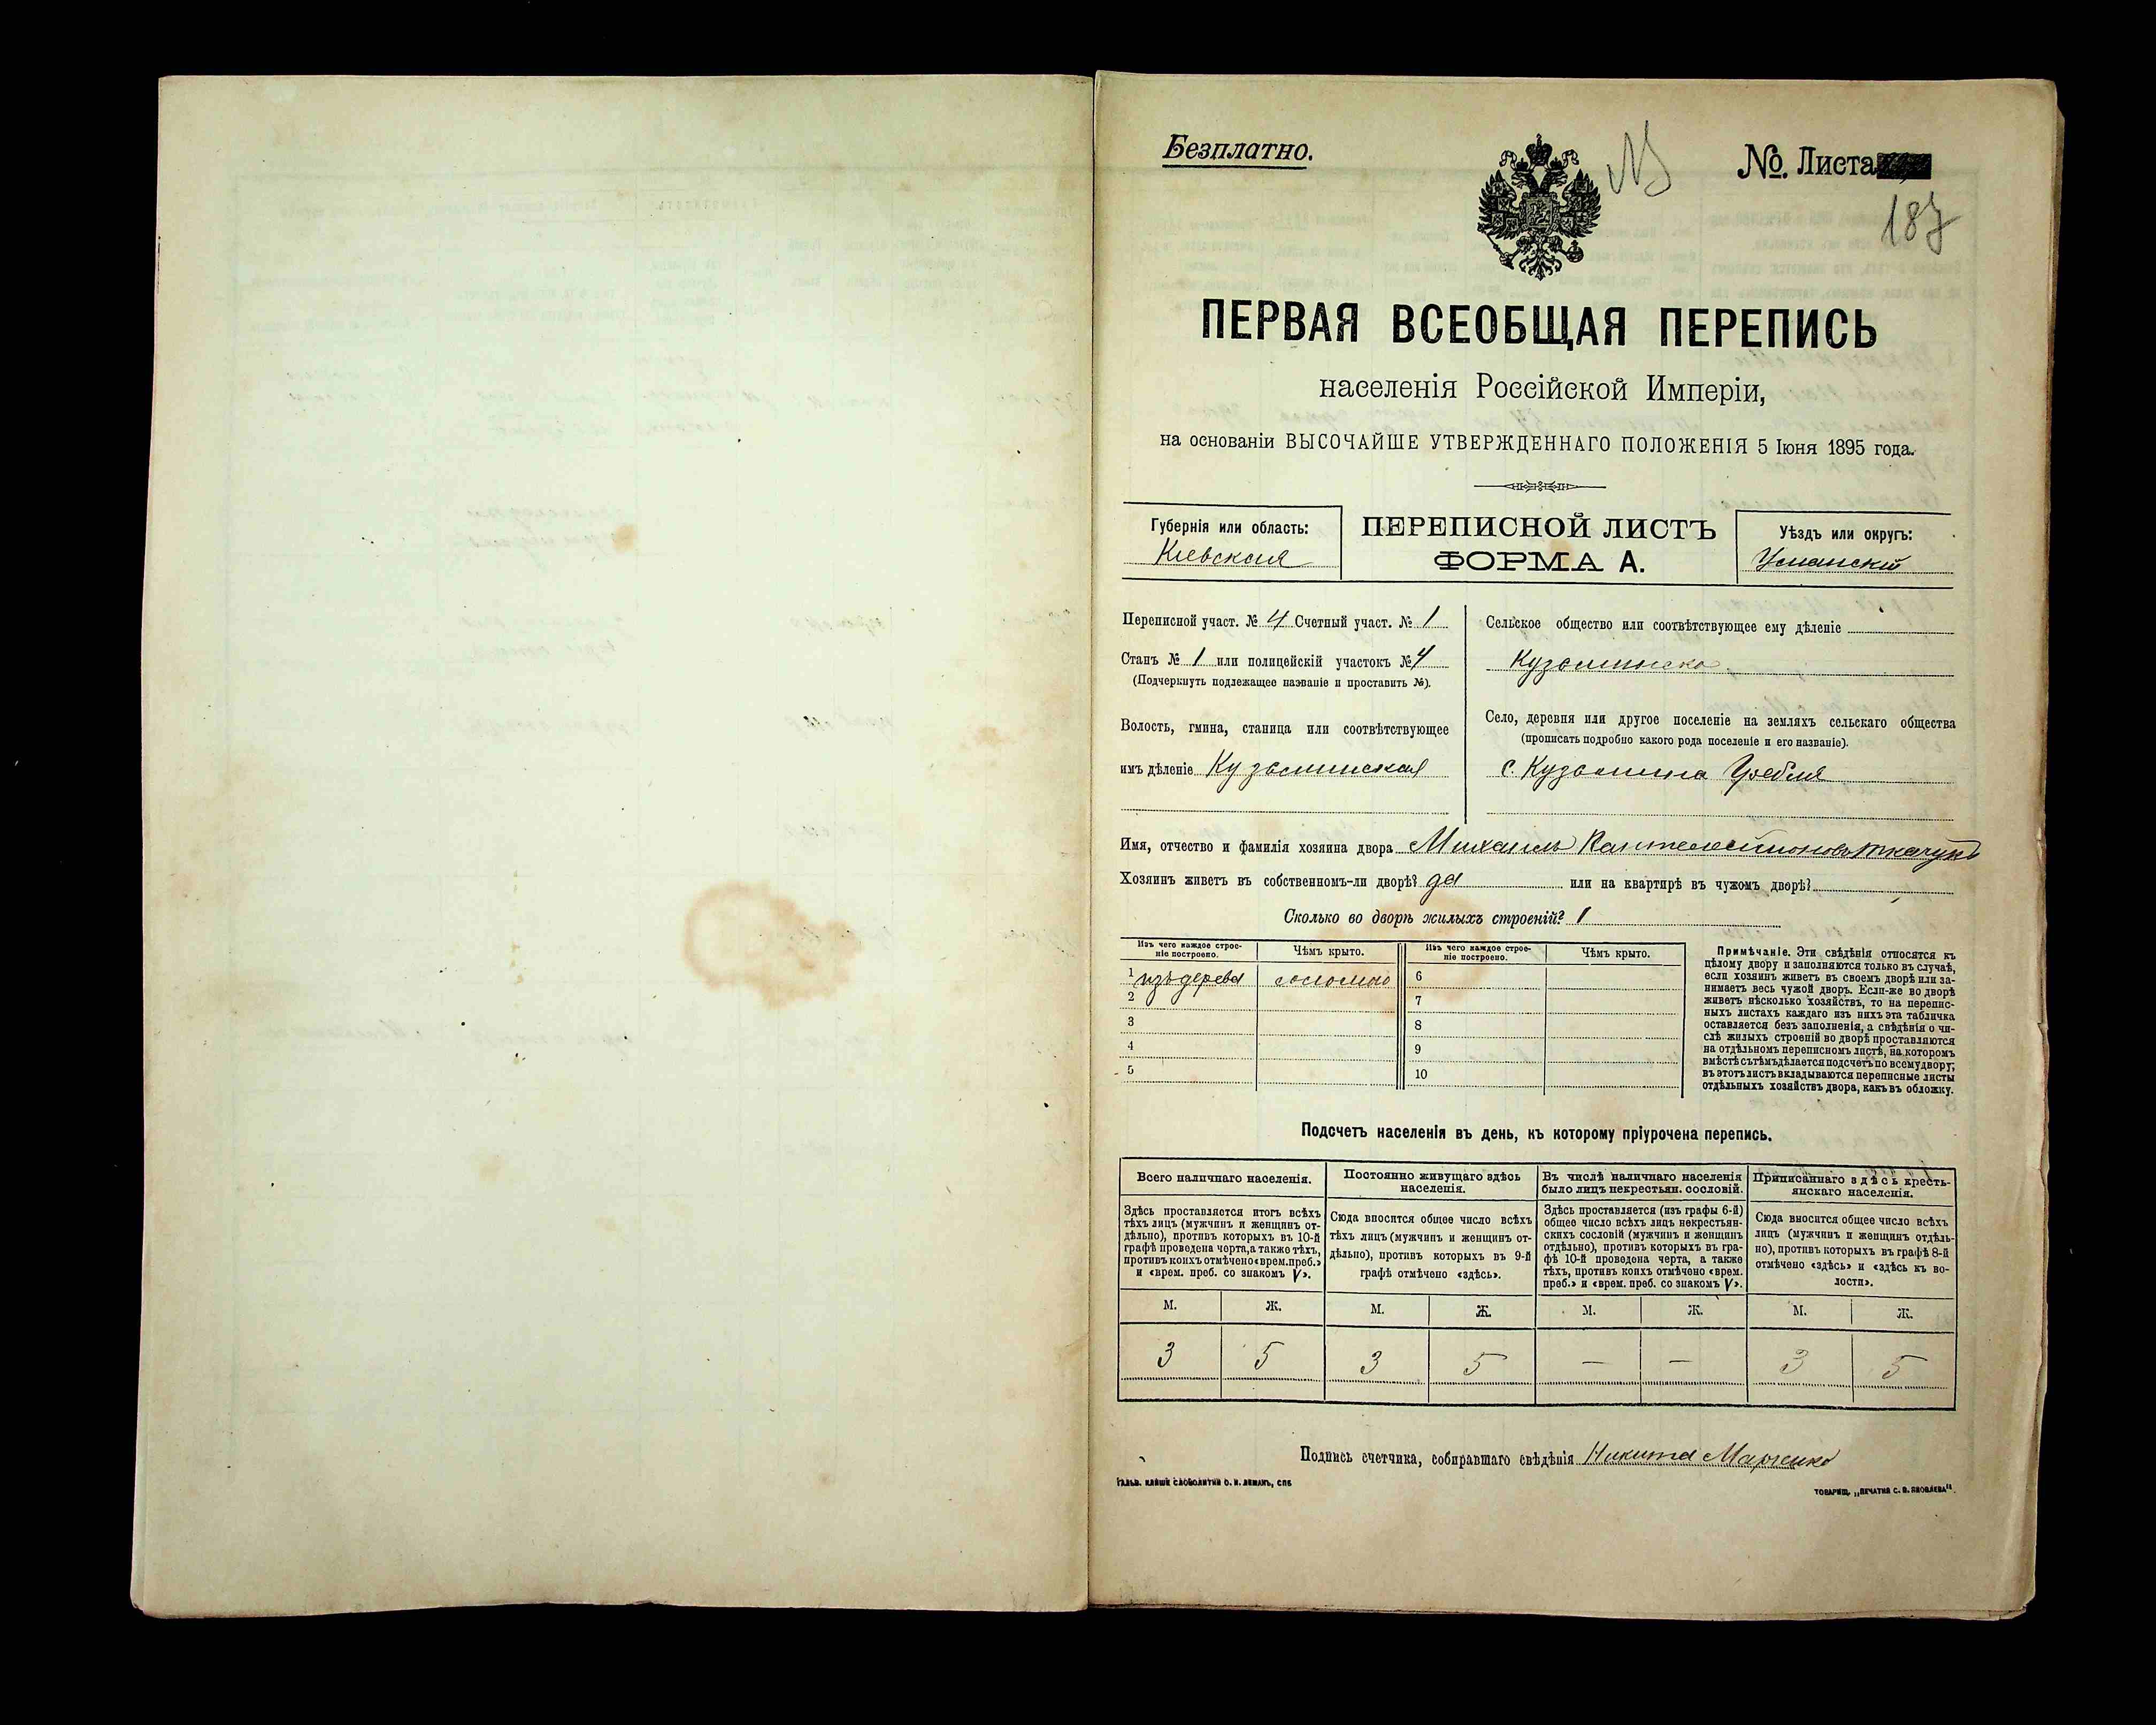 Безплатно.
№ Листа
187
ПЕРВАЯ ВСЕОБЩАЯ ПЕРЕПИСЬ
населенія Россійской Имперіи,
на основаніи ВЫСОЧАЙШЕ УТВЕРЖДЕННАГО ПОЛОЖЕНІЯ 5 Іюня 1895 года.
Губернія или область:
Кіевская
ПЕРЕПИСНОЙ ЛИСТЪ
ФОРМА А.
Уѣздъ или округъ:
Уманскій
Переписной участ. № 4 Счетный участ. № 1
Станъ № 1 или полицейскій участокъ № 4
(Подчеркнуть подлежащее названіе и проставить №).
Волость, гмина, станица или соотвѣтствующее
имъ дѣленіе Кузьминская
Сельское общество или соотвѣтствующее ему дѣленіе
Кузьминско
Село, деревня или другое поселеніе на земляхъ сельскаго общества
(прописать подробно какого рода поселеніе и его названіе).
с. Кузьмина Гребля
Имя, отчество и фамилія хозяина двора Михаилъ Пантелеймоновъ Ткачукъ
Хозяинъ живетъ въ собственномъ-ли дворѣ? да или на квартирѣ въ чужомъ дворѣ?
Сколько во дворѣ жилыхъ строеній? 1
Изъ чего каждое строе-
ніе построено.
Чѣмъ крыто.
Изъ чего каждое строе-
ніе построено.
Чѣмъ крыто.
1 изъ дерева соломою 6
2 7
3 8
4 9
5 10
Примѣчаніе. Эти свѣдѣнія относятся къ
цѣлому двору и заполняются только въ случаѣ,
если хозяинъ живетъ въ своемъ дворѣ или за-
нимаетъ весь чужой дворъ. Если-же во дворѣ
живетъ нѣсколько хозяйствъ, то на перепис-
ныхъ листахъ каждаго изъ нихъ эта табличка
оставляется безъ заполненія, а свѣдѣнія о чи-
слѣ жилыхъ строеній во дворѣ проставляются
на отдѣльномъ переписномъ листѣ, на которомъ
вмѣстѣ съ тѣмъ дѣлается подсчетъ по всему двору;
въ этотъ листъ вкладываются переписные листы
отдѣльныхъ хозяйствъ двора, какъ въ обложку.
Подсчетъ населенія въ день, къ которому пріурочена перепись.
Всего наличнаго населенія.
Здѣсь проставляется итогъ всѣхъ
тѣхъ лицъ (мужчинъ и женщинъ от-
дѣльно), противъ которыхъ въ 10-й
графѣ проведена черта, а также тѣхъ,
противъ коихъ отмѣчено «врем. преб.»
и «врем. преб. со знакомъ V».
Постоянно живущаго здѣсь
населенія.
Сюда вносится общее число всѣхъ
тѣхъ лицъ (мужчинъ и женщинъ от-
дѣльно), противъ которыхъ въ 9-й
графѣ отмѣчено «здѣсь».
Въ числѣ наличнаго населенія
было лицъ некрестьян. сословій.
Здѣсь проставляется (изъ графы 6-й)
общее число всѣхъ лицъ некрестьян-
скихъ сословій (мужчинъ и женщинъ
отдѣльно), противъ которыхъ въ гра-
фѣ 10-й проведена черта, а также
тѣхъ, противъ коихъ отмѣчено «врем.
преб.» и «врем. преб. со знакомъ V».
Приписаннаго здѣсь кресть-
янскаго населенія.
Сюда вносится общее число всѣхъ
лицъ (мужчинъ и женщинъ отдѣль-
но), противъ которыхъ въ графѣ 8-й
отмѣчено «здѣсь» и «здѣсь къ во-
лости».
М. Ж. М. Ж. М. Ж. М. Ж.
3 5 3 5 — — 3 5
Подпись счетчика, собиравшаго свѣдѣнія Никита Марченко
ГАЛЬВ. КЛИШЕ СЛОВОЛИТНИ О. И. ЛЕМАНЪ, СПБ
ТОВАРИЩ. „ПЕЧАТНЯ С. П. ЯКОВЛЕВА“.